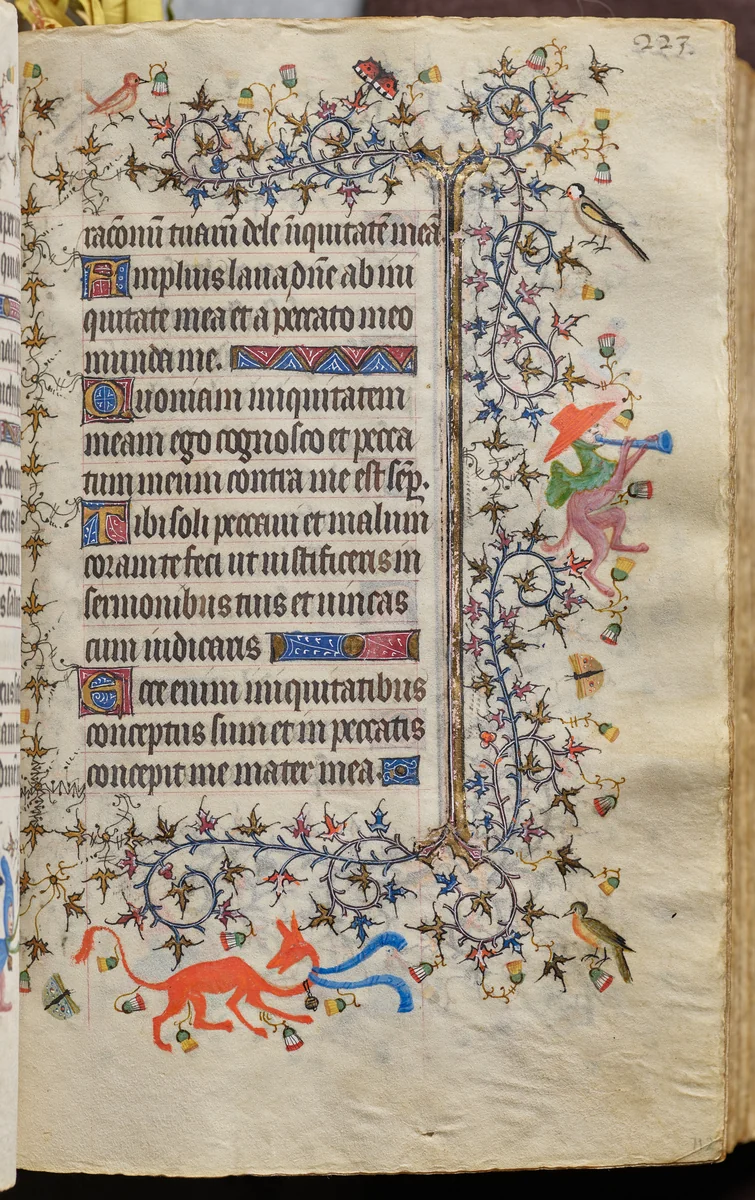 223.
racionū tuarū dele īiquitatē meā
Amplius laua dn̄e ab ini
quitate mea et a peccato meo
munda me.
Quoniam iniquitatem
meam ego cognosco et pecca
tum meum contra me est sēp.
Tibi soli peccaui et malum
coram te feci ut iustificeris in
sermonibus tuis et uincas
cum iudicaris
Ecce enim iniquitatibus
conceptus sum et in peccatis
concepit me mater mea.